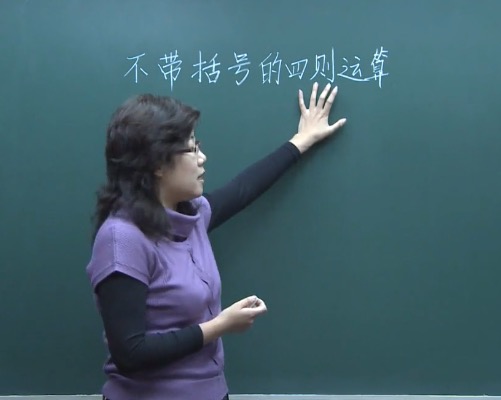 不带括号的四则运算